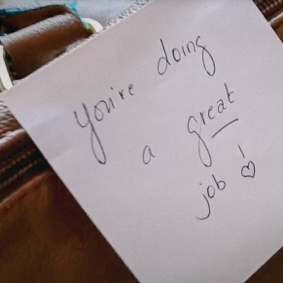 you're doing
a great
job ! ♡